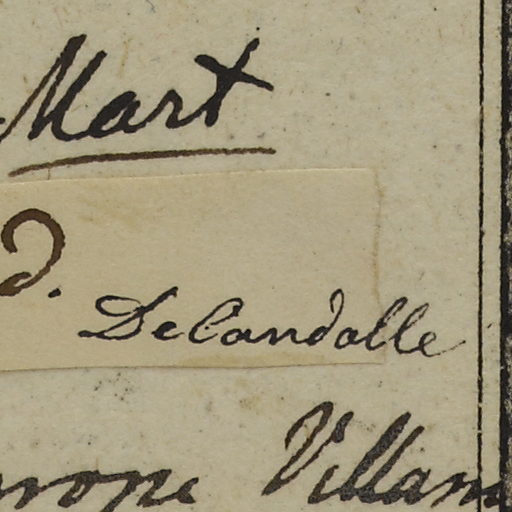 Mart
d.
DeCandolle
prope Villam